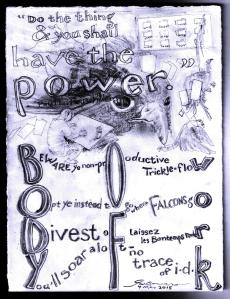 "Do the thing
& you shall
have the
power."
BODY
OF
work
BEWARE ye non-productive
Trickle-flow
Opt ye instead to go where FALCONS go
Divest of Laissez
les Bontemps
You'll soar aloft - no
trace
of i.d.
4 Mar 2015